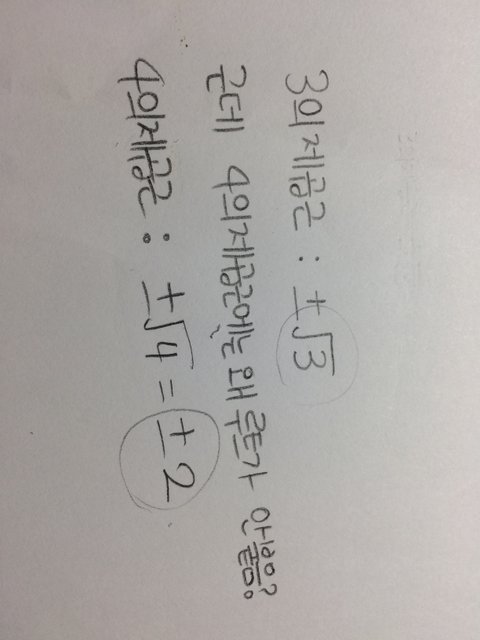 3의제곱근 : ±√3
근데 4의제곱근에는 왜 루트가 안붙음?
4의제곱근 : ±√4 = ±2